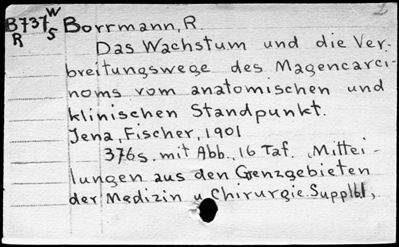 B737W Borrmann, R.
R S
Das Wachstum und die Ver-
breitungswege des Magencarci-
noms vom anatomischen und
klinischen Standpunkt.
Jena, Fischer, 1901
376s. mit Abb., 16 Taf. „Mittei-
lungen aus den Grenzgebieten
der Medizin u. Chirurgie. Supplbl,
2